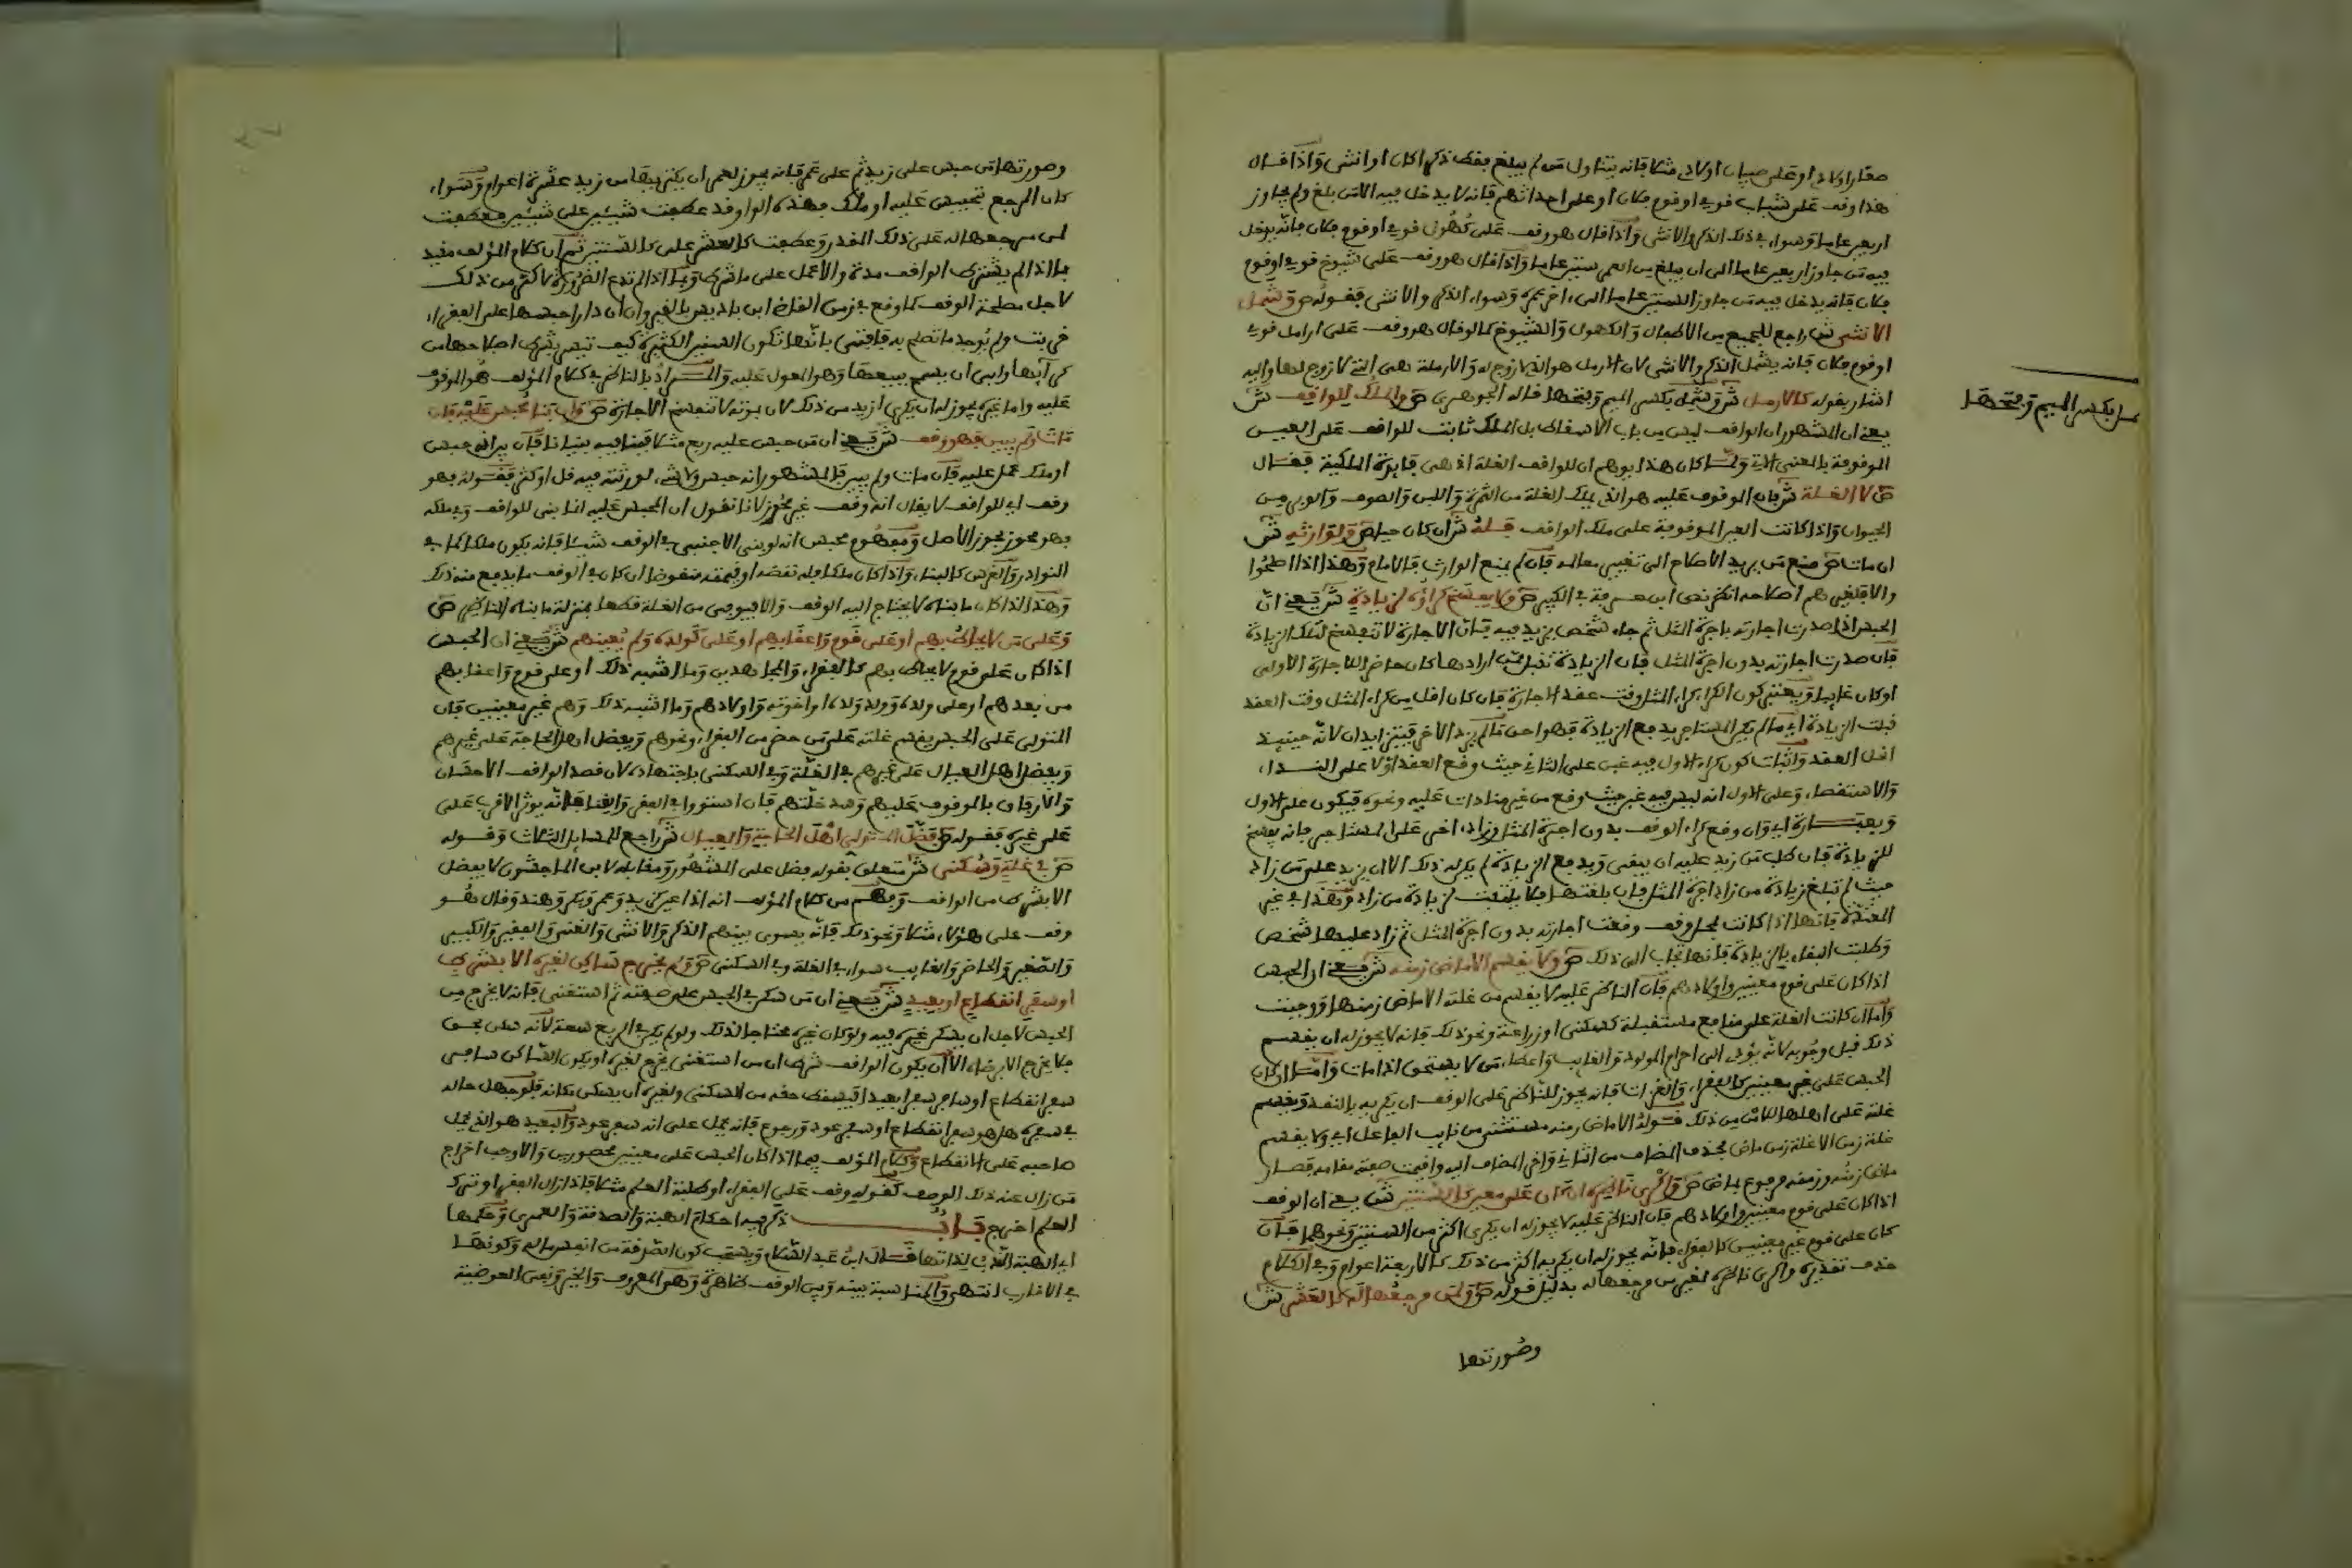 صغار اولادي او على صبيان اولادي مثلا فانه يتناول من لم يبلغ فقط ذكرا كان او انثى واذا قال
هذا وقف على شباب قومي او قوم فلان او على احداثهم فانه لا يدخل فيه الا من بلغ ولم يجاوز
اربعين عاما وسواء في ذلك الذكر والانثى واذا قال هو وقف على كهول قومي او قوم فلان فانه يدخل
فيه من جاوز اربعين عاما الى ان يبلغ من العمر ستين عاما واذا قال هو وقف على شيوخ قومي او قوم
فلان فانه يدخل فيه من جاوز الستين عاما الى اخر عمره وسواء الذكر والانثى فقوله ص وشمل
الانثى ش راجع للجميع من الاطفال والكهول والشيوخ كما لو قال هو وقف على ارامل قومي
او قوم فلان فانه يشمل الذكر والانثى لان الارمل هو الذي لا زوج له والارملة هي التي لا زوج لها واليه
اشار بقوله كالارمل ش وشمل بكسر الميم وفتحها قاله الجوهري ص والملك للواقف ش
يعني ان المشهور ان الواقف ليس من باب الاسقاط بل الملك ثابت للواقف على العين
الموقوفة بالمعنى الاتي ولما كان هذا يوهم ان للواقف الغلة اذ هي فايدة الملكية فقال
ص لا الغلة ش فان الموقوف عليه هو الذي يملك الغلة من الثمرة واللبن والصوف والوبر من
الحيوان واذا كانت العين الموقوفة على ملك الواقف فله ش ان كان حيا ص ولوارثه ش
ان مات ص منع من يريد الاصلاح الى تغيير معالمه فان لم يمنع الوارث فالامام وهذا اذا اصلحوا
والا فلغيرهم اصلاحه انظر نص ابن عرفة في الكبير ص ولا يفسخ كراؤه لزيادة ش يعني ان
الحبس اذا صدرت اجارته باجرة المثل ثم جاء شخص يزيد فيه فان الاجارة لا تنفسخ لتلك الزيادة
فان صدرت اجارته بدون اجرة المثل فان الزيادة تقبل ممن ارادها كان حاضر الاجارة الاولى
او كان غايبا ويعتبر كون الكراء كراء المثل وقت عقد الاجارة فان كان اقل من كراء المثل وقت العقد
قبلت الزيادة اي ما لم يكن المستاجر يدفع الزيادة فهو احق ما لم يزد الاخر فيتزايدان لانه حينيذ
اقل العقد واثبات كون كراء الاول فيه غبن على الثاني حيث وقع العقد اولا على النداء
والاستقصاء وعلى الاول انه ليس فيه غبن حيث وقع من غير منادات عليه ونحوه فيكون على الاول
وبعبارة اي وان وقع كراء الوقف بدون اجرة المثل وزاد اخر على المستاجر فانه يفسخ
للزيادة فان طلب من زيد عليه ان يبقى ويدفع الزيادة لم يكن له ذلك الا ان يزيد على من زاد
حيث لم تبلغ زيادة من زاد اجرة المثل فان بلغتها فلا يلتفت لزيادة من زاد وهذا في غير
المعتدة فانها اذا كانت بمحل وقف وقعت اجارته بدون اجرة المثل ثم زاد عليها شخص
وطلبت البقاء بالزيادة فانها تجاب الى ذلك ص ولا يقسم الا ماض زمنه ش يعني ان الحبس
اذا كان على قوم معينين واولادهم فان الناظر عليه لا يقسم من غلته الا ماض زمنها ووجبت
واما ان كانت الغلة على منافع مستقبلة كسكنى او زراعة ونحو ذلك فانه لا يجوز له ان يقسم
ذلك قبل وجوبه لانه يؤدي الى احرام المولود والغايب واعطاء من لا يستحق اذا مات واما ان كان
الحبس على غير معينين كالفقراء والغزات فانه يجوز للناظر على الوقف ان يكريه بالنقد ويقسم
غلته على اهلها للامن من ذلك فقوله الا ماض زمنه مستثنى من نايب الفاعل اي ولا يقسم
غلة زمن الا غلة زمن ماض بحذف المضاف من الثاني واخر المضاف اليه واقيمت صفته مقامه فصار
ماض زمنه وزمنه مرفوع بماض ص واكرى ناظره ان كان على معين كالسنتين ش يعني ان الوقف
اذا كان على قوم معينين واولادهم فان الناظر عليه لا يجوز له ان يكري اكثر من السنتين ونحوهما فان
كان على قوم غير معينين كالفقراء فانه يجوز له ان يكريه اكثر من ذلك كالاربعة اعوام وفي الكلام
حذف تقديره واكرى ناظره لغير من مرجعها له بدليل قوله ص ولمن مرجعها له كالعشر ش
وصورتها
مل بكسر الميم وفتحها
وصورتها من حبس على زيد ثم على عمر فانه يجوز لعمر ان يكتريها من زيد عشرة اعوام وسواء
كان المرجع بتحبيس عليه او ملك فهذه الواو قد عطفت شيئين على شيئين فعطفت
لمن مرجعها له على ذلك المقدر وعطفت كالعشر على كالسنتين ثم ان كلام المؤلف مقيد
بما اذا لم يشترط الواقف مدة والا عمل على ما شرط وبما اذا لم تدع الضرورة لاكثر من ذلك
لاجل مصلحة الوقف كما وقع في زمن القاضي ابن باديس بالقيروان ان دارا حبسها على الفقراء
خربت ولم يوجد ما تصلح به فافتى بانها تكرى السنين الكثيرة كيف تيسر بشرط اصلاحها من
كرائها وابى ان يسمح ببيعها وهو المعول عليه والمراد بالناظر في كلام المؤلف هو الموقوف
عليه واما غيره يجوز له ان يكري ازيد من ذلك لان بموته لا تنفسخ الاجارة ص وان بنا محبس عليه فان
مات ولم يبين فهو وقف ش يعني ان من حبس عليه ربع مثلا فبنا فيه بنيانا فان بين انه حبس
او ملك عمل عليه فان مات ولم يبين فالمشهور انه حبس ولا شيء لورثته فيه قل او كثر فقوله فهو
وقف اي للواقف لا يقال انه وقف غير محوز لانا نقول ان المحبس عليه انما بنى للواقف وفي ملكه
فهو محوز بحوز الاصل ومفهوم محبس انه لو بنى الاجنبي في الوقف شيئا فانه يكون ملكا كما في
النوادر والغرس كالبناء واذا كان ملكا فله نقضه او قيمته منقوضا ان كان في الوقف ما يدفع منه ذلك
وهذا اذا كان ما بناه لا يحتاج اليه الوقف والا فيوفى من الغلة قطعا بمنزلة ما بناه الناظر ص
وعلى من لا يحاط بهم او على قوم واعقابهم او على كولده ولم يعينهم ش يعني ان الحبس
اذا كان على قوم لا يحاط بهم كالفقراء والمجاهدين وما اشبه ذلك او على قوم واعقابهم
من بعدهم او على ولده وولد ولده او اخوته واولادهم وما اشبه ذلك وهم غير معينين فان
المتولي على الحبس يقسم غلته على من حضر من الفقراء ونحوهم ويفضل اهل الحاجة على غيرهم
ويفضل اهل العيال على غيرهم في الغلة وفي السكنى باجتهاده لان قصد الواقف الاحسان
والارفاق بالموقوف عليهم وسد خلتهم فان استووا في الفقر والغنا فانه يوثر الاقرب على
على غيره فقوله ص فضل المتولي اهل الحاجة والعيال ش راجع للمسايل الثلاث وقوله
ص في غلة وسكنى ش متعلق بقوله فضل على المشهور ومقابله لابن الماجشون لا يفضل
الا بشرط من الواقف ويفهم من كلام المؤلف انه اذا عين كزيد وعمر وبكر وهند وقال هو
وقف على هؤلاء مثلا ونحو ذلك فانه يسوى بينهم الذكر والانثى والغني والفقير والكبير
والصغير والحاضر والغايب سواء في الغلة وفي السكنى ص ولم يخرج ساكن لغيره الا بشرط
او سفر انقطاع او بعيد ش يعني ان من سكن في الحبس على صفته ثم استغنى فانه لا يخرج من
الحبس لاجل ان يسكن غيره فيه ولو كان غيره محتاجا لذلك ولو لم يكن في الربع سعة لانه سكن بحق
فلا يخرج الا برضاه الا ان يكون الواقف شرط ان من استغنى يخرج لغيره او يكون الساكن سافر
سفر انقطاع او سافر سفرا بعيدا فيسقط حقه من السكنى ولغيره ان يسكن مكانه فلو جهل حاله
في سفره هل هو سفر انقطاع او سفر عود ورجوع فانه يحمل على انه سفر عود والبعيد هو الذي يحمل
صاحبه على الانقطاع وكلام المؤلف فيما اذا كان الحبس على معينين محصورين والا وجب اخراج
من زال عنه ذلك الوصف كقوله وقف على الفقراء او طلبة العلم مثلا فاذا زال الفقر او ترك
العلم اخرج باب ذكر فيه احكام الهبة والصدقة والعمرى وحكمها
اي الهبة الندب لذاتها قال ابن عبد السلام ويستحب كون الصدقة من انفس ماله وكونها
في الاقارب انتهى والمناسبة بينه وبين الوقف ظاهرة وهو المعروف والخير ونفي العوضية